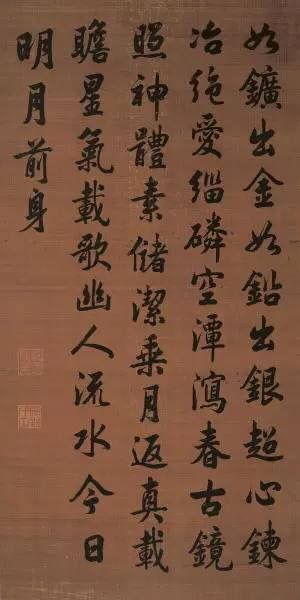 如鑛出金如鉛出銀超心鍊
冶絶愛緇磷空潭瀉春古鏡
照神體素儲潔乘月返真載
瞻星氣載歌幽人流水今日
明月前身